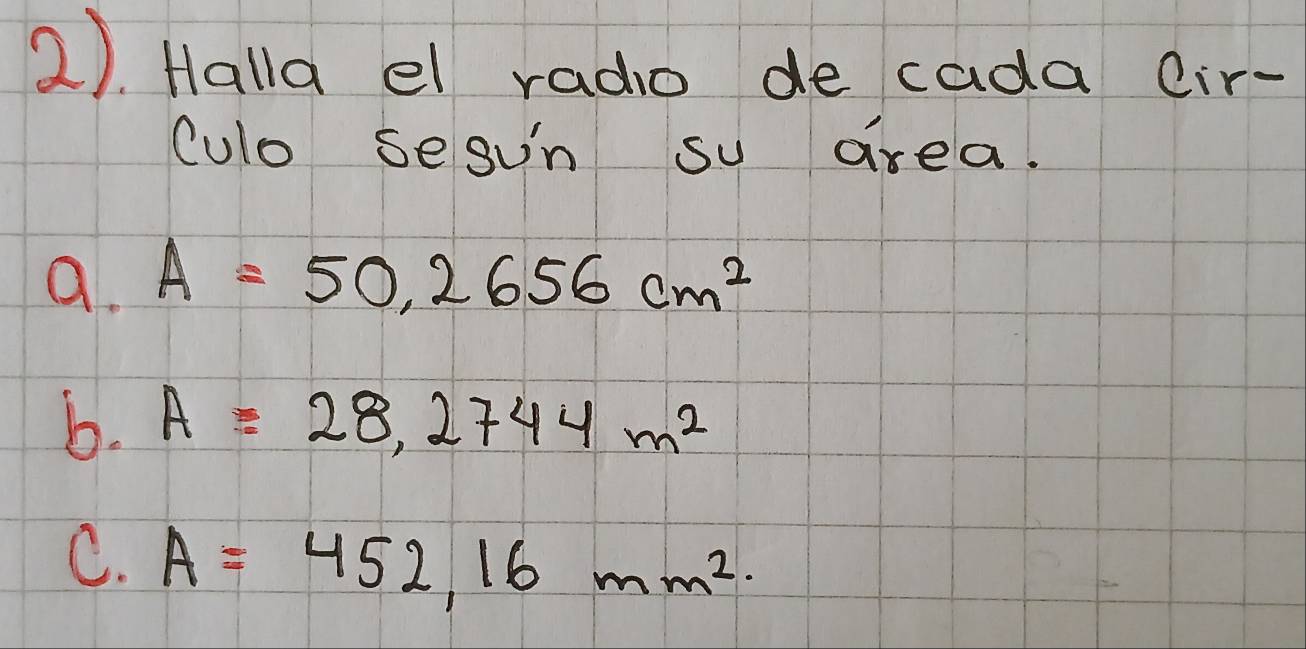 2). Halla el radio de cada Cir-
Culo según su área.
a. A = 50,2656 cm²
b. A = 28,2744 m²
C. A = 452,16 mm².